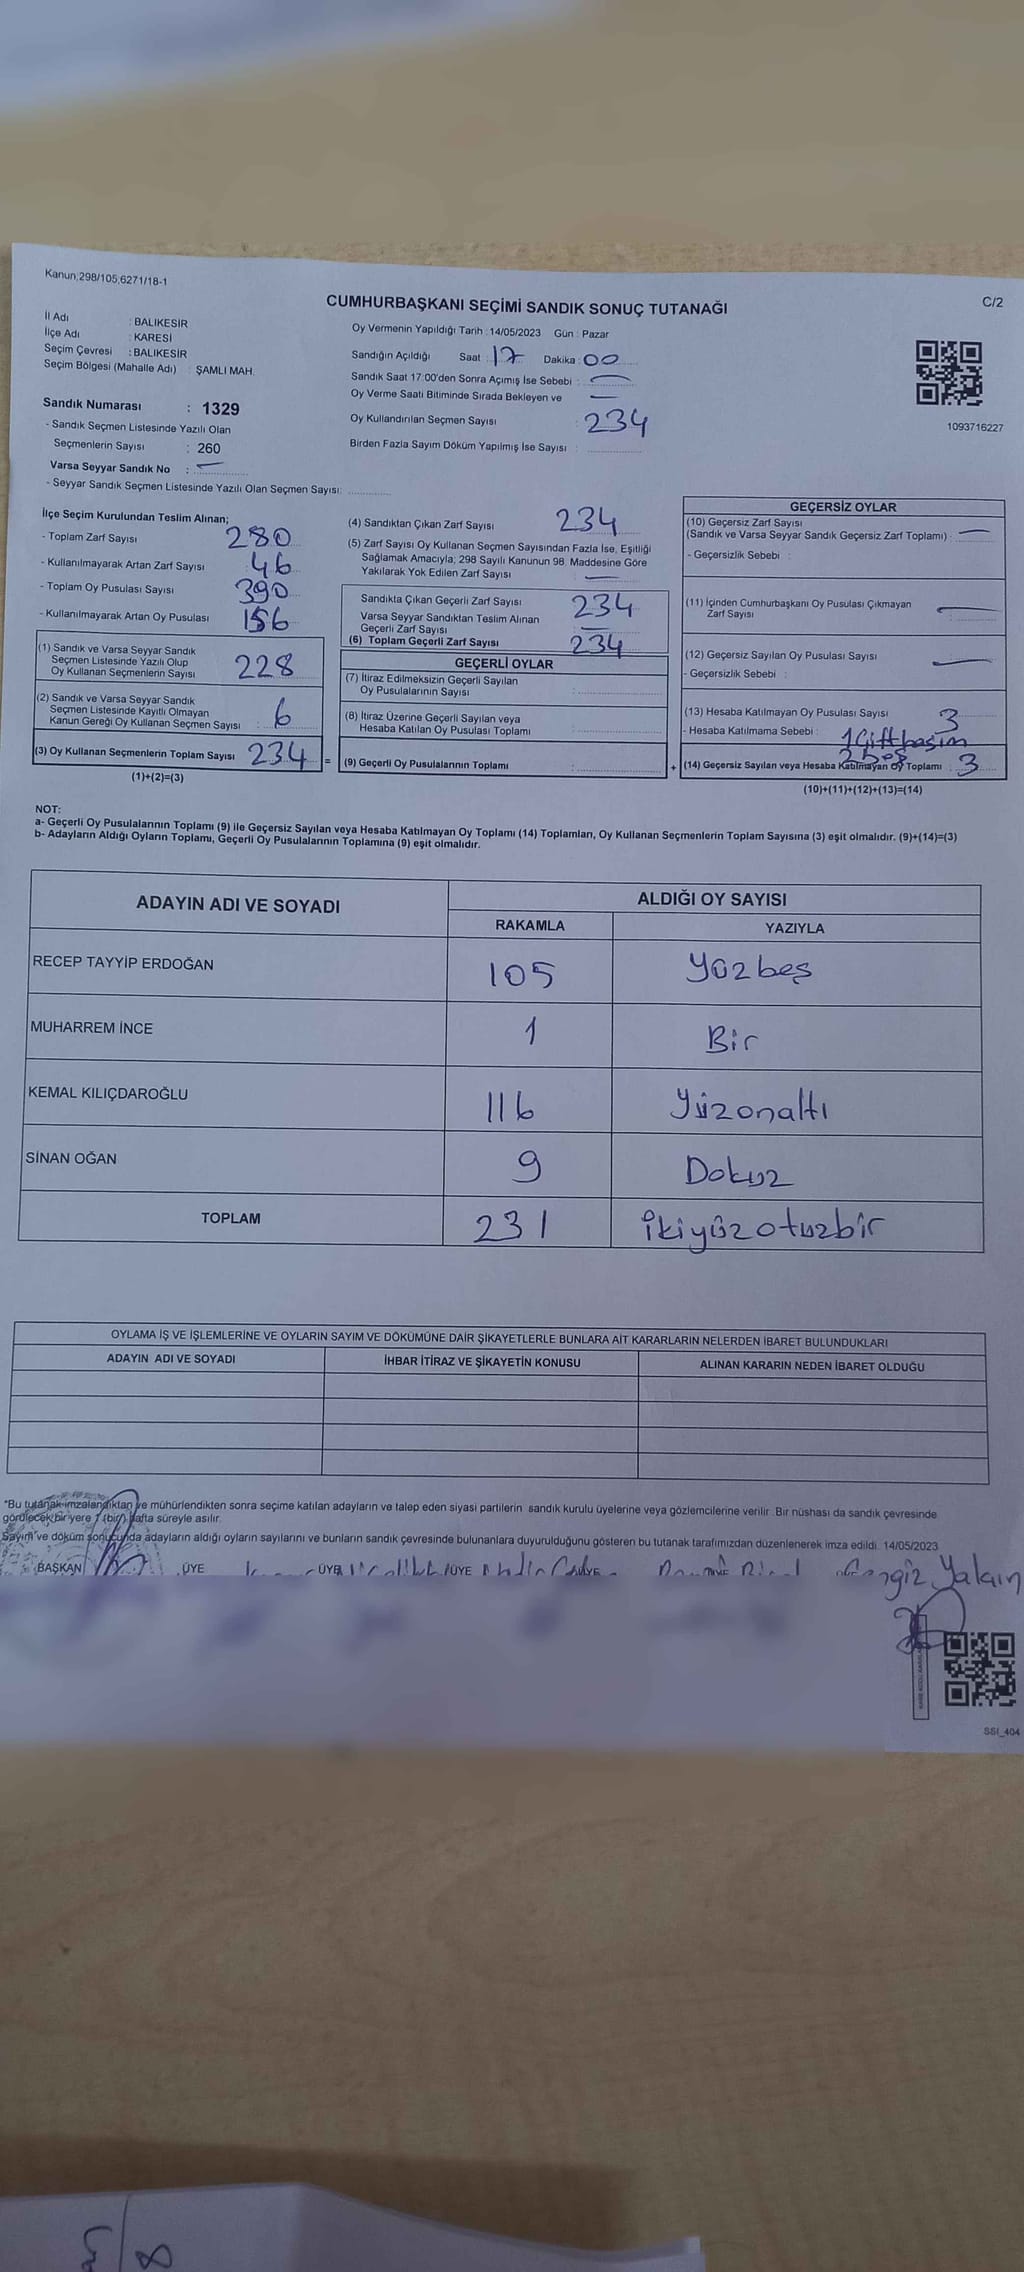 Kanun;298/105;6271/18-1
C/2
CUMHURBAŞKANI SEÇİMİ SANDIK SONUÇ TUTANAĞI
İl Adı : BALIKESİR
İlçe Adı : KARESİ
Seçim Çevresi : BALIKESİR
Seçim Bölgesi (Mahalle Adı) : ŞAMLI MAH.
Sandık Numarası : 1329
- Sandık Seçmen Listesinde Yazılı Olan
Seçmenlerin Sayısı : 260
Varsa Seyyar Sandık No : —
- Seyyar Sandık Seçmen Listesinde Yazılı Olan Seçmen Sayısı:
Oy Vermenin Yapıldığı Tarih : 14/05/2023 Gün : Pazar
Sandığın Açıldığı Saat : 17 Dakika : 00
Sandık Saat 17:00'den Sonra Açımış İse Sebebi : —
Oy Verme Saati Bitiminde Sırada Bekleyen ve —
Oy Kullandırılan Seçmen Sayısı : 234
Birden Fazla Sayım Döküm Yapılmış İse Sayısı :
1093716227
İlçe Seçim Kurulundan Teslim Alınan;
- Toplam Zarf Sayısı 280
- Kullanılmayarak Artan Zarf Sayısı 46
- Toplam Oy Pusulası Sayısı 390
- Kullanılmayarak Artan Oy Pusulası 156
(1) Sandık ve Varsa Seyyar Sandık
Seçmen Listesinde Yazılı Olup
Oy Kullanan Seçmenlerin Sayısı 228
(2) Sandık ve Varsa Seyyar Sandık
Seçmen Listesinde Kayıtlı Olmayan
Kanun Gereği Oy Kullanan Seçmen Sayısı : 6
(3) Oy Kullanan Seçmenlerin Toplam Sayısı 234 =
(1)+(2)=(3)
(4) Sandıktan Çıkan Zarf Sayısı 234
(5) Zarf Sayısı Oy Kullanan Seçmen Sayısından Fazla İse, Eşitliği
Sağlamak Amacıyla; 298 Sayılı Kanunun 98. Maddesine Göre
Yakılarak Yok Edilen Zarf Sayısı : —
Sandıkta Çıkan Geçerli Zarf Sayısı 234
Varsa Seyyar Sandıktan Teslim Alınan
Geçerli Zarf Sayısı —
(6) Toplam Geçerli Zarf Sayısı 234
GEÇERLİ OYLAR
(7) İtiraz Edilmeksizin Geçerli Sayılan
Oy Pusulalarının Sayısı :
(8) İtiraz Üzerine Geçerli Sayılan veya
Hesaba Katılan Oy Pusulası Toplamı :
(9) Geçerli Oy Pusulalarının Toplamı : +
GEÇERSİZ OYLAR
(10) Geçersiz Zarf Sayısı
(Sandık ve Varsa Seyyar Sandık Geçersiz Zarf Toplamı) : —
- Geçersizlik Sebebi :
(11) İçinden Cumhurbaşkanı Oy Pusulası Çıkmayan
Zarf Sayısı —
(12) Geçersiz Sayılan Oy Pusulası Sayısı —
- Geçersizlik Sebebi :
(13) Hesaba Katılmayan Oy Pusulası Sayısı 3
- Hesaba Katılmama Sebebi : 1 Çift basım
2 boş
(14) Geçersiz Sayılan veya Hesaba Katılmayan Oy Toplamı : 3
(10)+(11)+(12)+(13)=(14)
NOT:
a- Geçerli Oy Pusulalarının Toplamı (9) ile Geçersiz Sayılan veya Hesaba Katılmayan Oy Toplamı (14) Toplamları, Oy Kullanan Seçmenlerin Toplam Sayısına (3) eşit olmalıdır. (9)+(14)=(3)
b- Adayların Aldığı Oyların Toplamı, Geçerli Oy Pusulalarının Toplamına (9) eşit olmalıdır.
ADAYIN ADI VE SOYADI ALDIĞI OY SAYISI
RAKAMLA YAZIYLA
RECEP TAYYİP ERDOĞAN 105 Yüzbeş
MUHARREM İNCE 1 Bir
KEMAL KILIÇDAROĞLU 116 Yüzonaltı
SİNAN OĞAN 9 Dokuz
TOPLAM 231 İkiyüzotuzbir
OYLAMA İŞ VE İŞLEMLERİNE VE OYLARIN SAYIM VE DÖKÜMÜNE DAİR ŞİKAYETLERLE BUNLARA AİT KARARLARIN NELERDEN İBARET BULUNDUKLARI
ADAYIN ADI VE SOYADI İHBAR İTİRAZ VE ŞİKAYETİN KONUSU ALINAN KARARIN NEDEN İBARET OLDUĞU
*Bu tutanak imzalandıktan ve mühürlendikten sonra seçime katılan adayların ve talep eden siyasi partilerin sandık kurulu üyelerine veya gözlemcilerine verilir. Bir nüshası da sandık çevresinde
görülecek bir yere 1 (bir) hafta süreyle asılır.
Sayım ve döküm sonucunda adayların aldığı oyların sayılarını ve bunların sandık çevresinde bulunanlara duyurulduğunu gösteren bu tutanak tarafımızdan düzenlenerek imza edildi. 14/05/2023
BAŞKAN ÜYE ÜYE ÜYE ÜYE Cengiz Yalçın
SSI_404